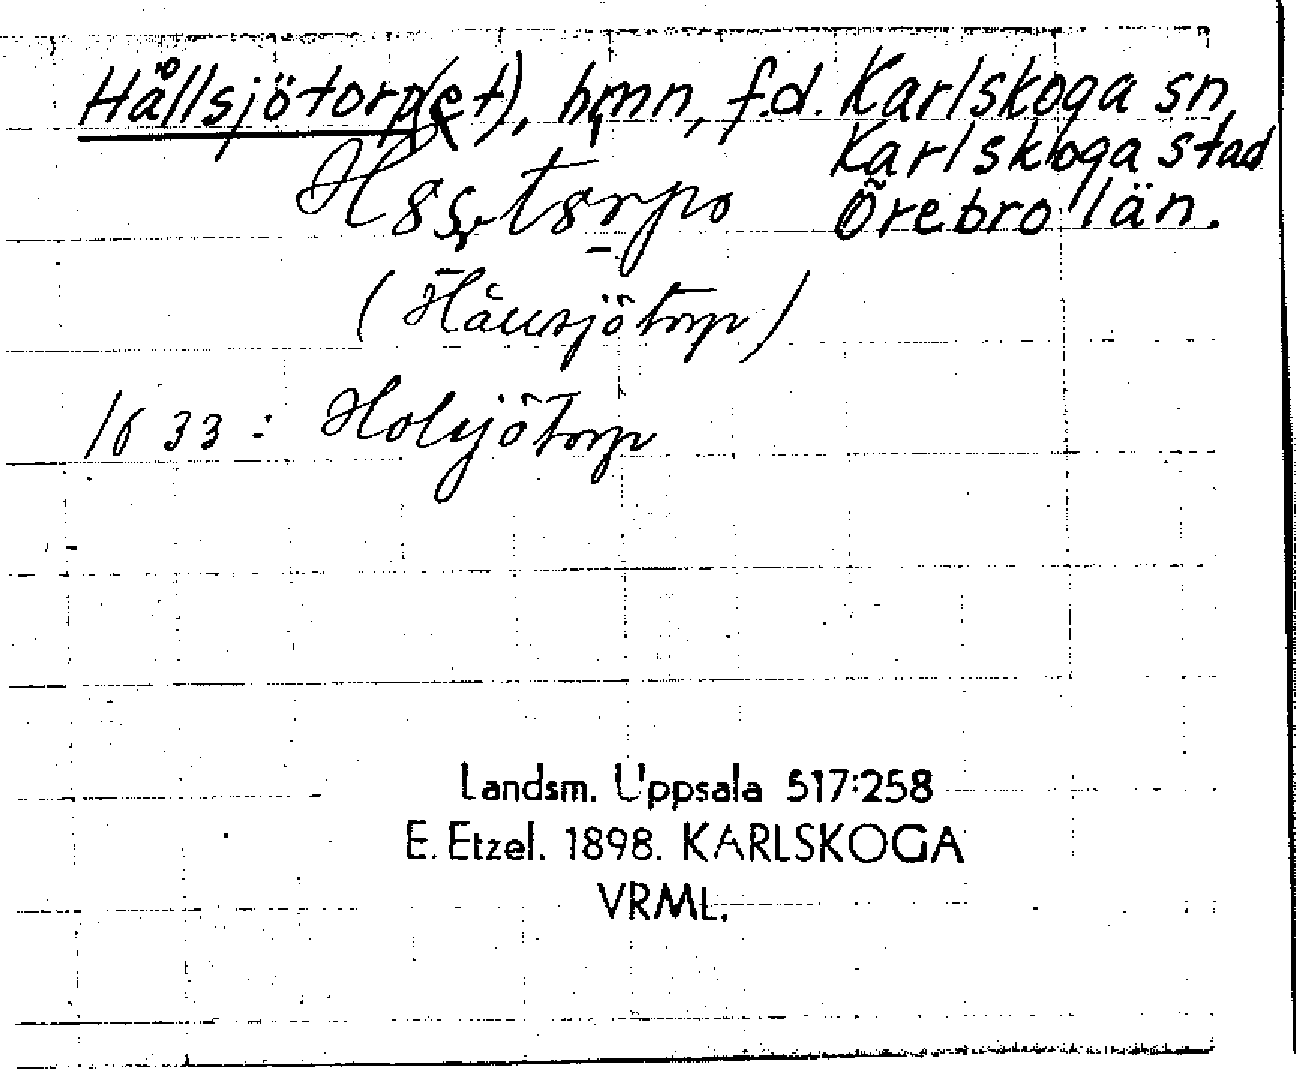 Hållsjötorp(et), hmn, f.d. Karlskoga sn,
Karlskoga stad
Örebro län.
(Hållsjötorp)
1633: Holsjötorp
Landsm. Uppsala 517:258
E. Etzel. 1898. KARLSKOGA
VRML.